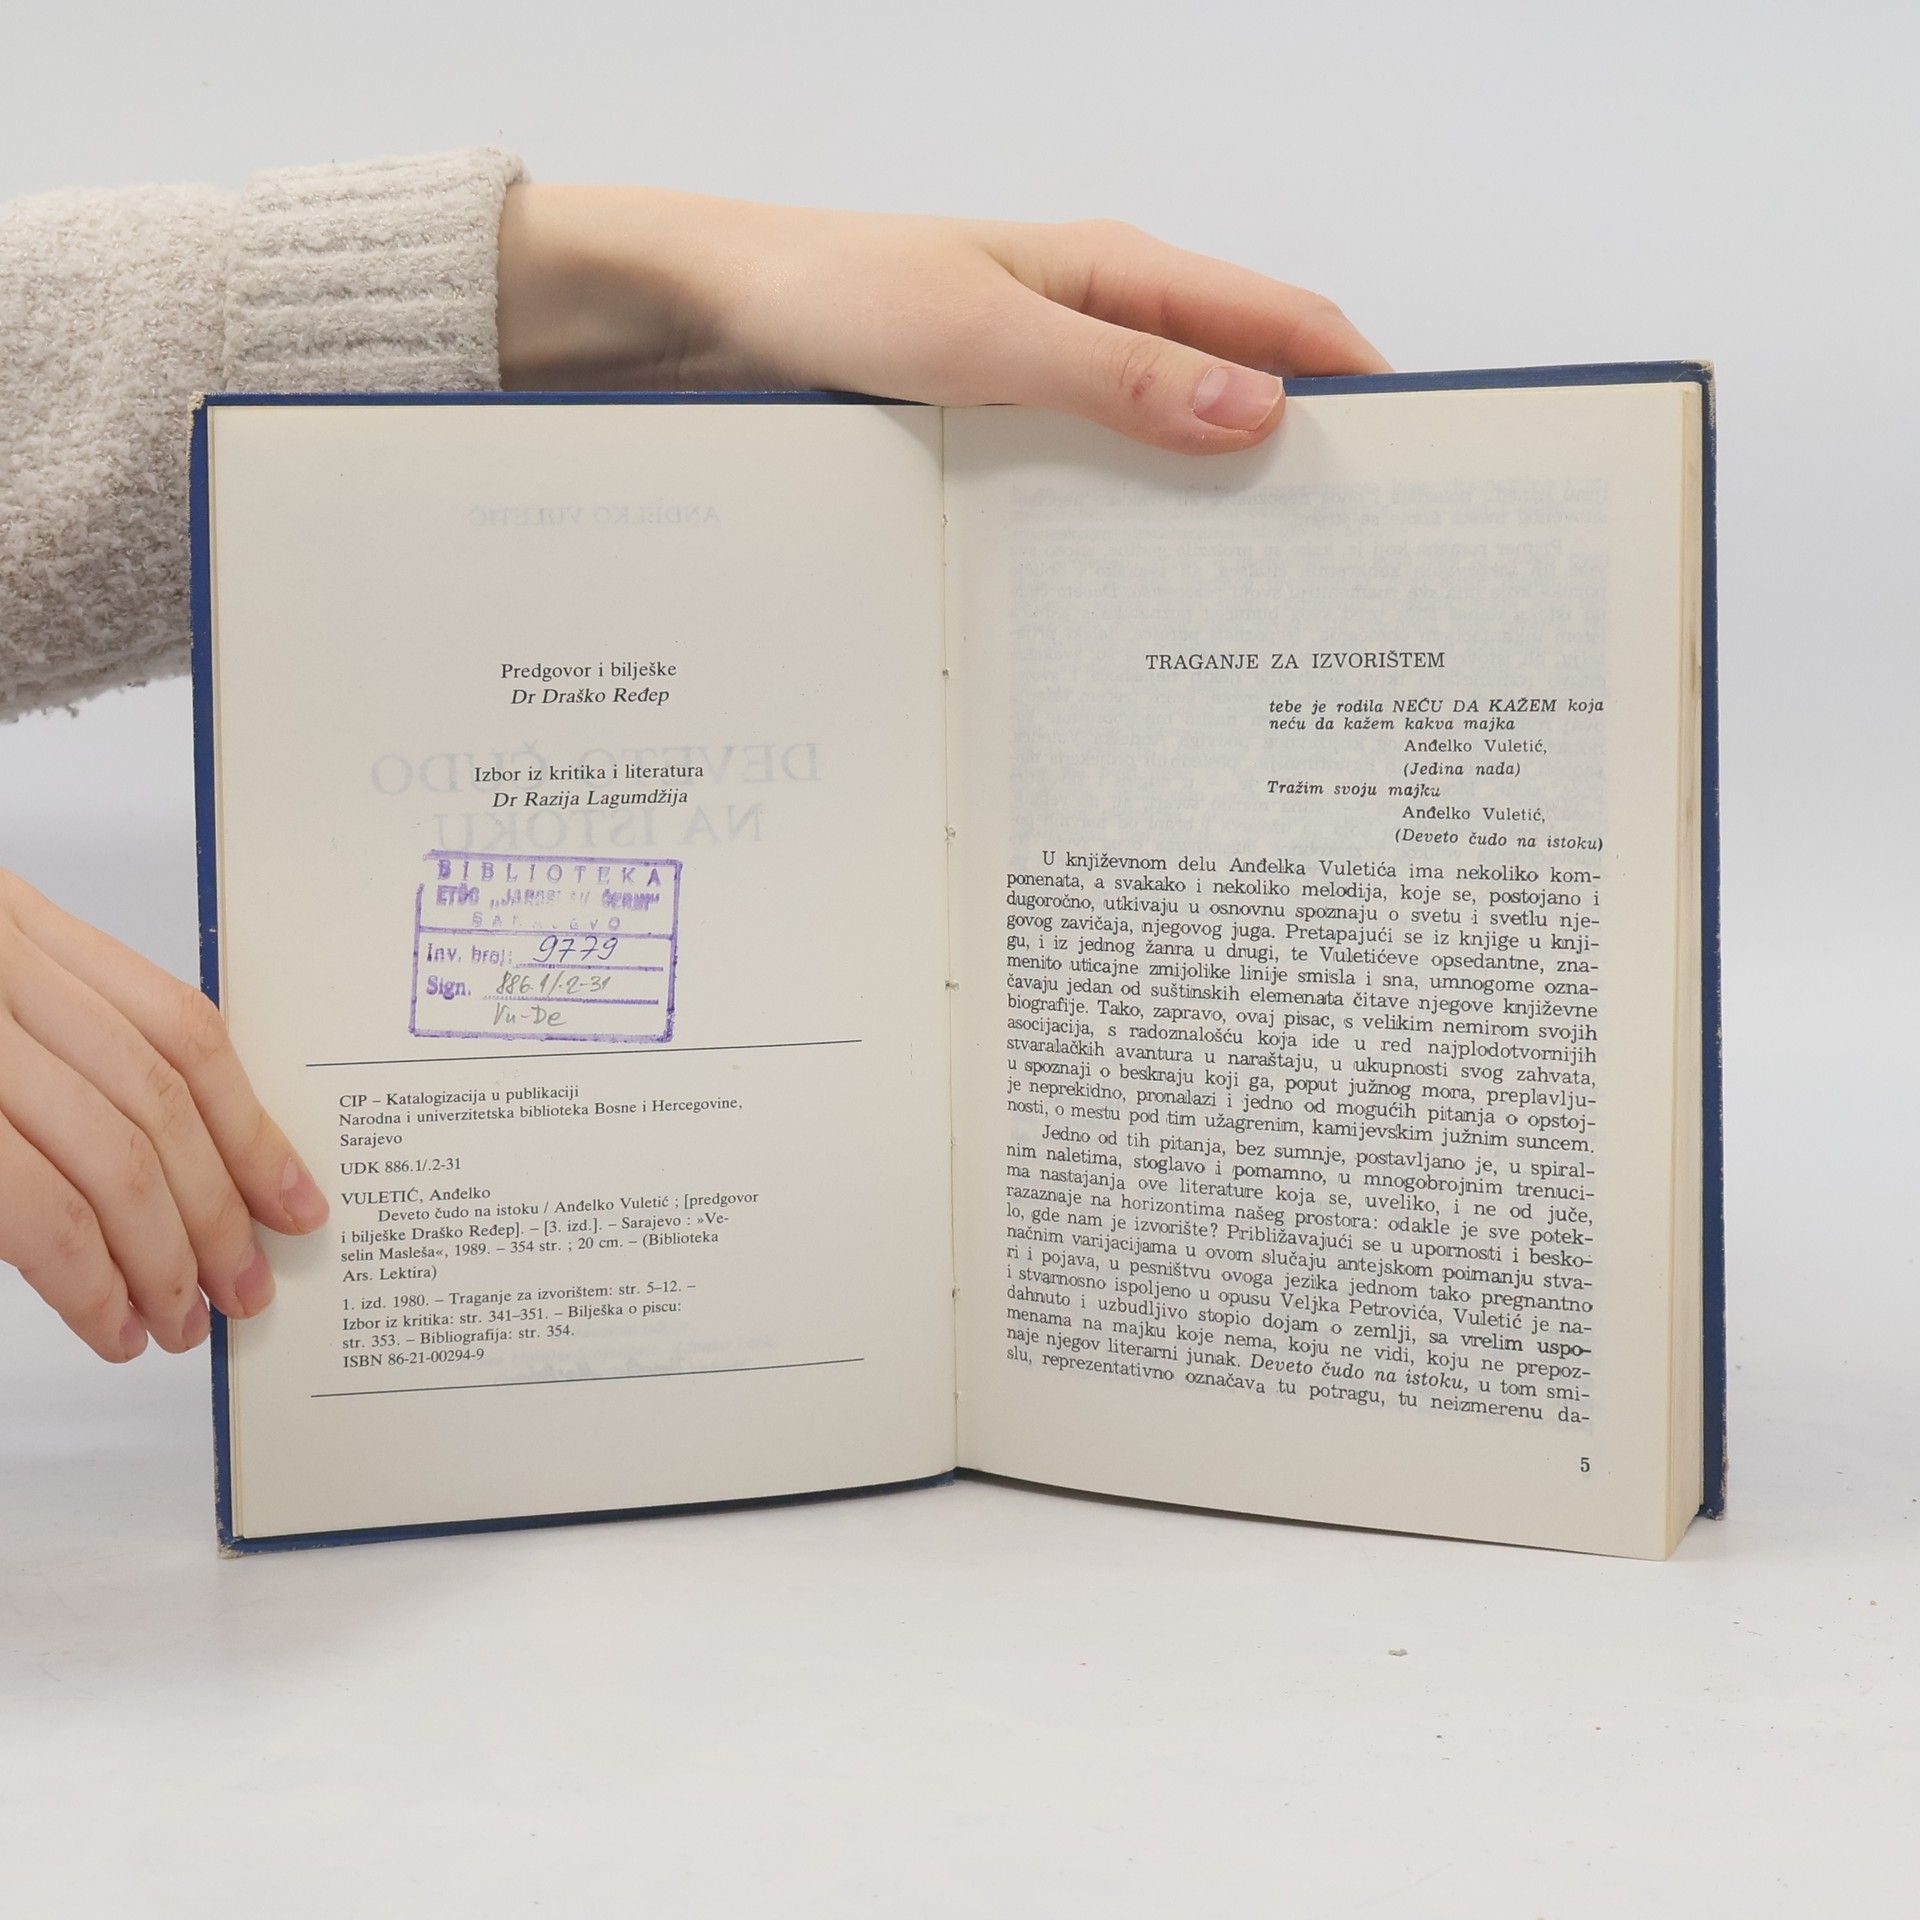 Predgovor i bilješke
Dr Draško Ređep
Izbor iz kritika i literatura
Dr Razija Lagumdžija
BIBLIOTEKA
ETŠC
Inv. broj: 9779
Sign. 886.1/.2-31
Vu-De
CIP – Katalogizacija u publikaciji
Narodna i univerzitetska biblioteka Bosne i Hercegovine,
Sarajevo
UDK 886.1/.2-31
VULETIĆ, Anđelko
Deveto čudo na istoku / Anđelko Vuletić ; [predgovor
i bilješke Draško Ređep]. – [3. izd.]. – Sarajevo : »Ve-
selin Masleša«, 1989. – 354 str. ; 20 cm. – (Biblioteka
Ars. Lektira)
1. izd. 1980. – Traganje za izvorištem: str. 5–12. –
Izbor iz kritika: str. 341–351. – Bilješka o piscu:
str. 353. – Bibliografija: str. 354.
ISBN 86-21-00294-9
TRAGANJE ZA IZVORIŠTEM
tebe je rodila NEĆU DA KAŽEM koja
neću da kažem kakva majka
Anđelko Vuletić,
(Jedina nada)
Tražim svoju majku
Anđelko Vuletić,
(Deveto čudo na istoku)
U književnom delu Anđelka Vuletića ima nekoliko kom-
ponenata, a svakako i nekoliko melodija, koje se, postojano i
dugoročno, utkivaju u osnovnu spoznaju o svetu i svetlu nje-
govog zavičaja, njegovog juga. Pretapajući se iz knjige u knji-
gu, i iz jednog žanra u drugi, te Vuletićeve opsedantne, zna-
menito uticajne zmijolike linije smisla i sna, umnogome ozna-
čavaju jedan od suštinskih elemenata čitave njegove književne
biografije. Tako, zapravo, ovaj pisac, s velikim nemirom svojih
asocijacija, s radoznalošću koja ide u red najplodotvornijih
stvaralačkih avantura u naraštaju, u ukupnosti svog zahvata,
u spoznaji o beskraju koji ga, poput južnog mora, preplavlju-
je neprekidno, pronalazi i jedno od mogućih pitanja o opstoj-
nosti, o mestu pod tim užagrenim, kamijevskim južnim suncem.
Jedno od tih pitanja, bez sumnje, postavljano je, u spiral-
nim naletima, stoglavo i pomamno, u mnogobrojnim trenuci-
ma nastajanja ove literature koja se, uveliko, i ne od juče,
razaznaje na horizontima našeg prostora: odakle je sve potek-
lo, gde nam je izvorište? Približavajući se u upornosti i besko-
načnim varijacijama u ovom slučaju antejskom poimanju stva-
ri i pojava, u pesništvu ovoga jezika jednom tako pregnantno
i stvarnosno ispoljeno u opusu Veljka Petrovića, Vuletić je na-
dahnuto i uzbudljivo stopio dojam o zemlji, sa vrelim uspo-
menama na majku koje nema, koju ne vidi, koju ne prepoz-
naje njegov literarni junak. Deveto čudo na istoku, u tom smi-
slu, reprezentativno označava tu potragu, tu neizmerenu da-
5